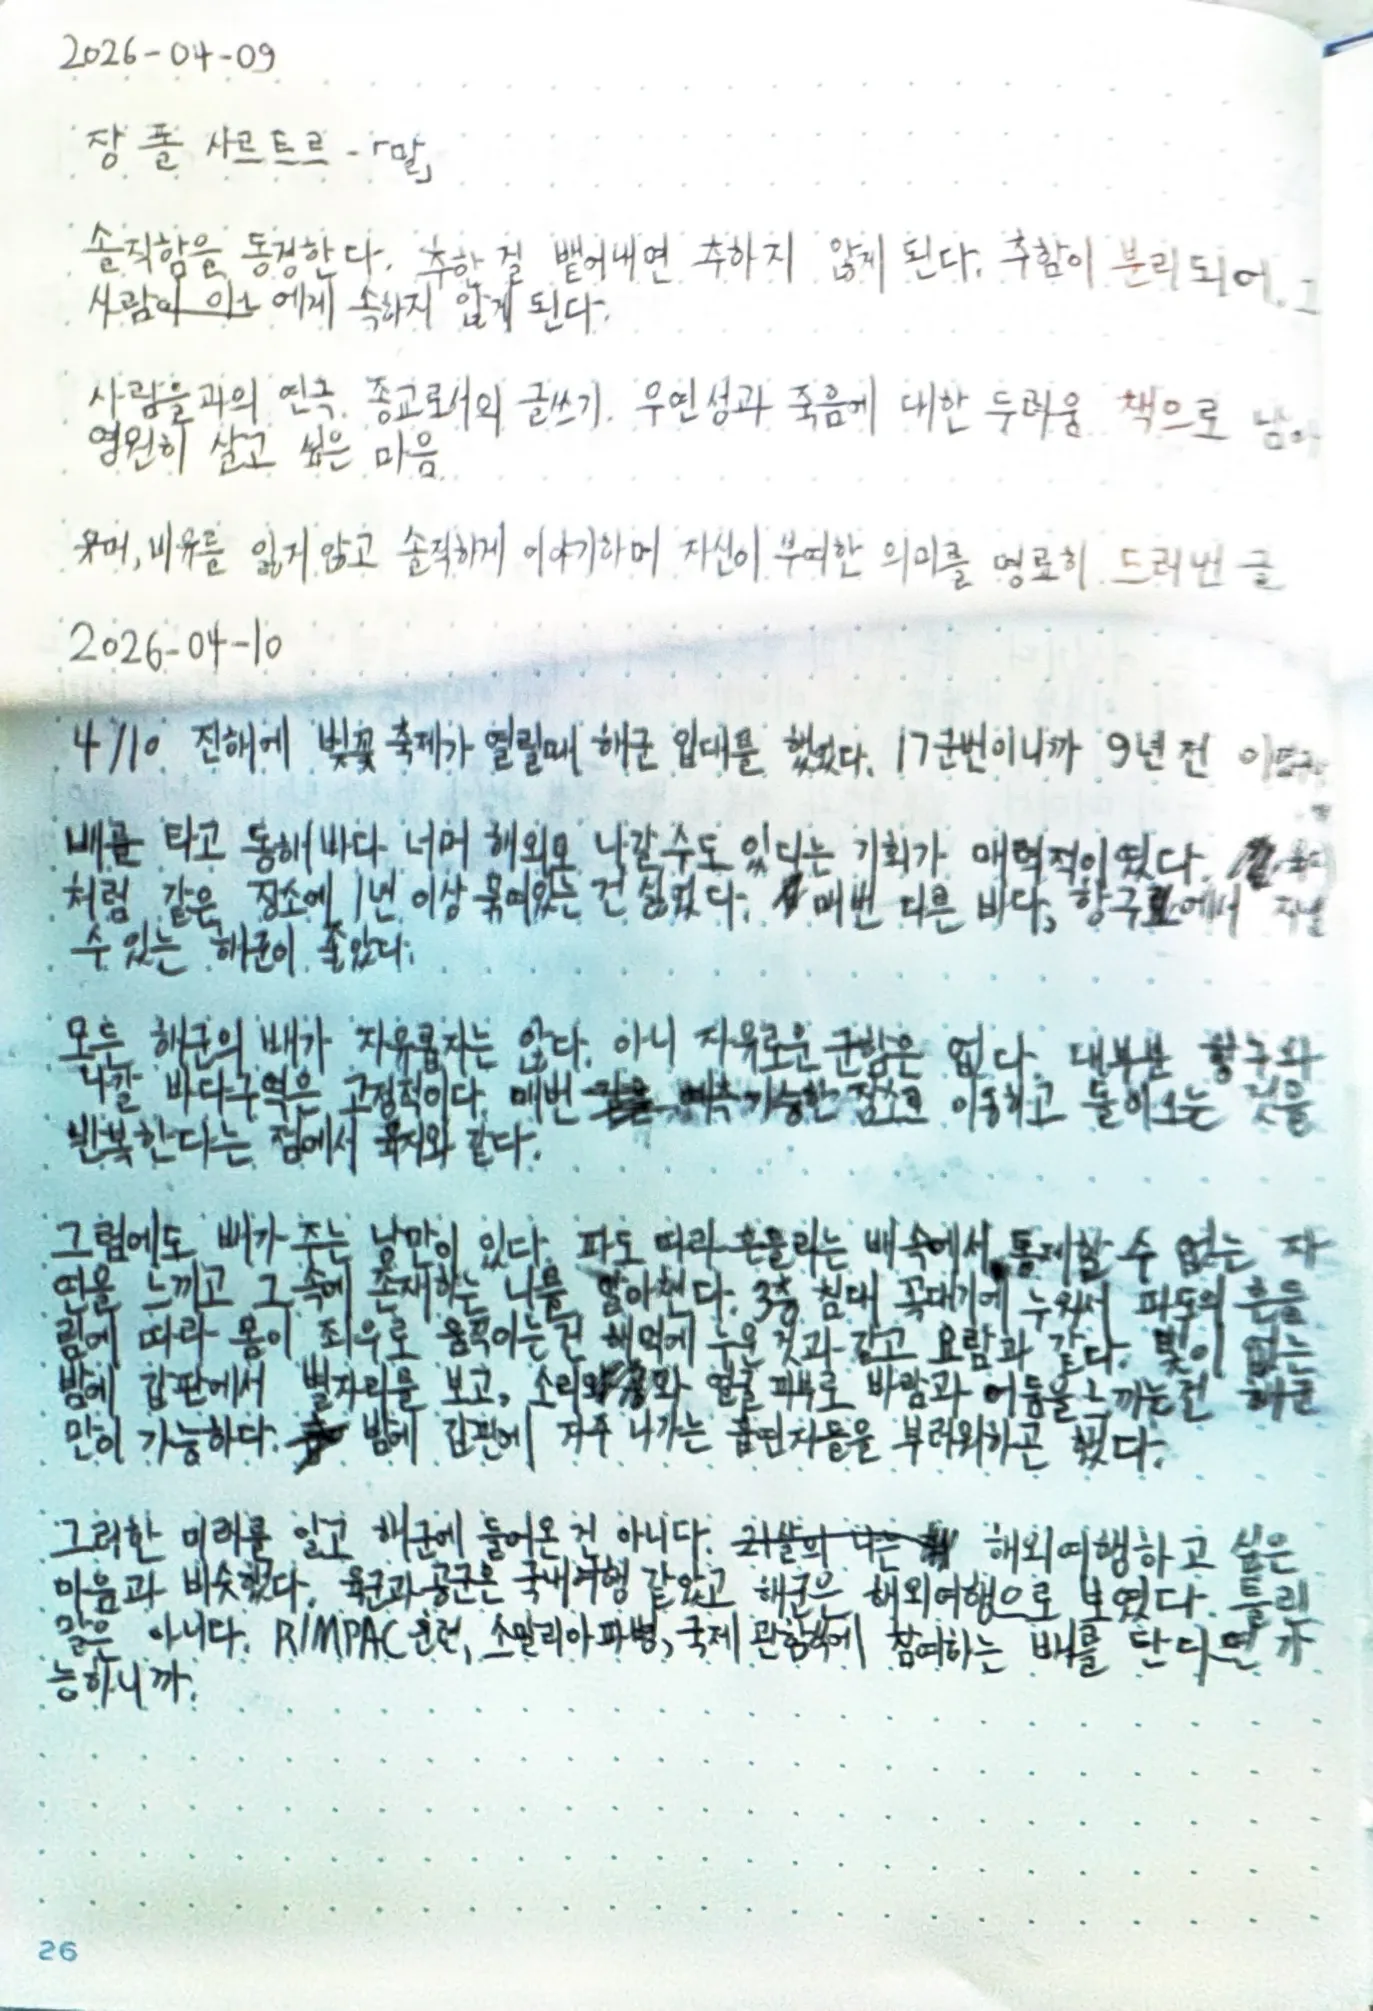 2026-04-09
장 폴 사르트르 - 「말」
솔직함을 동경한다. 추한 걸 뱉어내면 추하지 않게 된다. 추함이 분리되어, 그
사람에게 속하지 않게 된다.
사람들과의 연극. 종교로서의 글쓰기. 우연성과 죽음에 대한 두려움 책으로 남아
영원히 살고 싶은 마음
유머, 비유를 잃지 않고 솔직하게 이야기하며 자신이 부여한 의미를 명료히 드러낸 글
2026-04-10
4/10 진해에 벚꽃 축제가 열릴때 해군 입대를 했었다. 17군번이니까 9년 전
배를 타고 동해바다 너머 해외로 나갈 수도 있다는 기회가 매력적이었다. 육지
처럼 같은 장소에 1년 이상 묶여있는 건 싫었다. 매번 다른 바다, 항구에서 지낼
수 있는 해군이 좋았다.
모든 해군의 배가 자유롭지는 않다. 아니 자유로운 군함은 없다. 대부분 항구와
나갈 바다구역은 고정적이다. 매번 예측가능한 장소로 이동하고 돌아오는 것을
반복한다는 점에서 육지와 같다.
그럼에도 배가 주는 낭만이 있다. 파도 따라 흔들리는 배 속에서 통제할 수 없는 자
연을 느끼고 그 속에 존재하는 나를 알아챈다. 3층 침대 꼭대기에 누워서 파도의 흔들
림에 따라 몸이 좌우로 움직이는건 해먹에 누운 것과 같고 요람과 같다. 빛이 없는
밤에 갑판에서 별자리를 보고, 소리와 얼굴 피부로 바람과 어둠을 느끼는건 해군
만이 가능하다. 밤에 갑판에 자주 나가는 흡연자들을 부러워하곤 했다.
그러한 미래를 알고 해군에 들어온 건 아니다. 21살의 나는 해외여행하고 싶은
마음과 비슷했다. 육군과 공군은 국내여행 같았고 해군은 해외여행으로 보였다. 틀린
말은 아니다. RIMPAC 훈련, 소말리아 파병, 국제 관함식에 참여하는 배를 탄다면 가
능하니까.
26